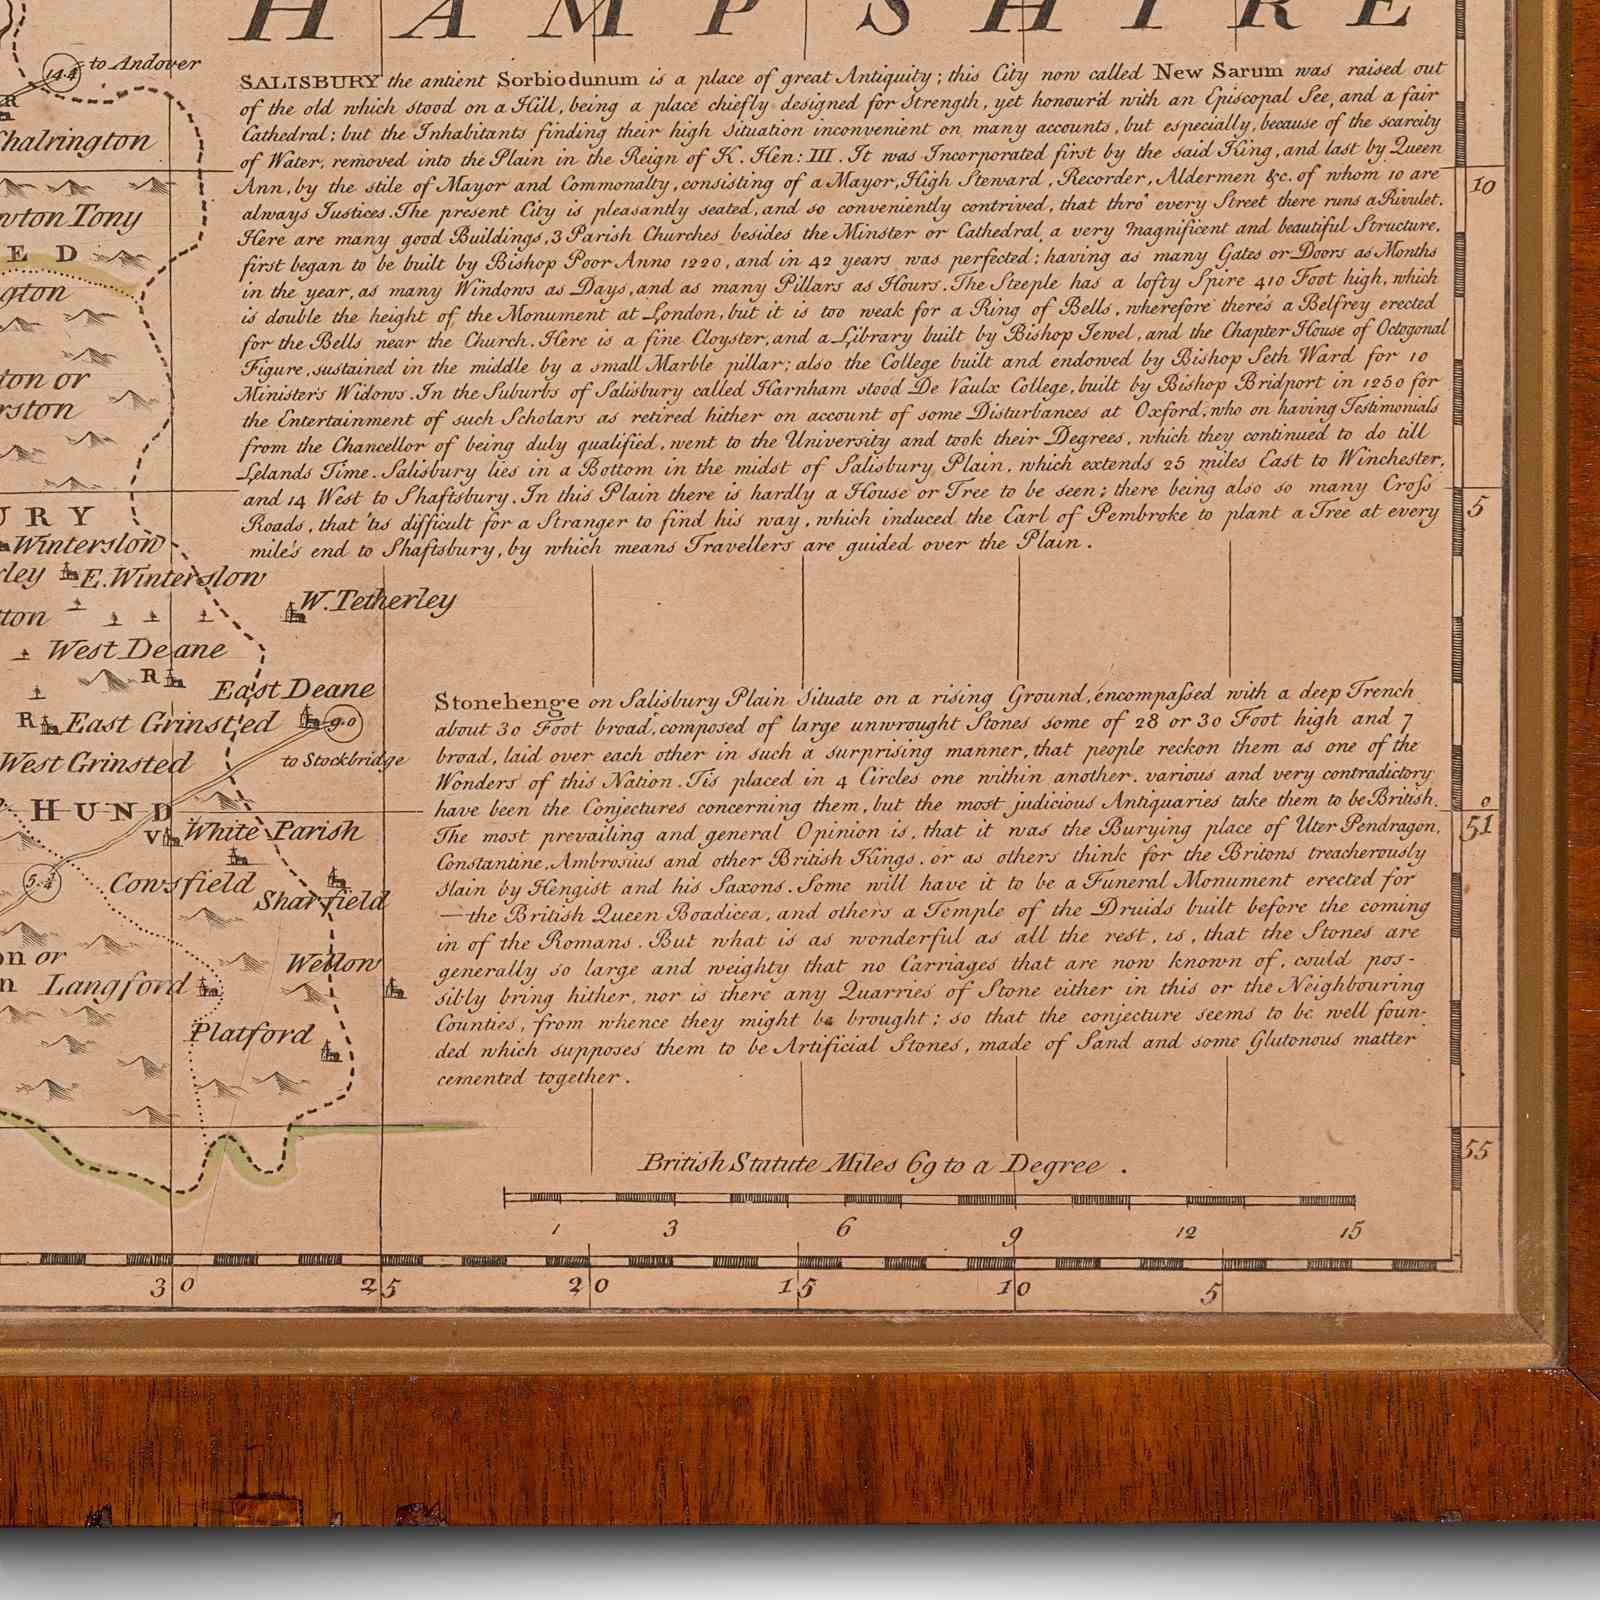 HAMPSHIRE
14.4 to Andover
SALISBURY the antient Sorbiodunum is a place of great Antiquity; this City now called New Sarum was raised out
of the old which stood on a Hill, being a place chiefly designed for Strength, yet honour'd with an Episcopal See, and a fair
Cathedral; but the Inhabitants finding their high Situation inconvenient on many accounts, but especially, because of the scarcity
of Water, removed into the Plain in the Reign of K. Hen: III. It was Incorporated first by the said King, and last by Queen
Ann, by the stile of Mayor and Commonalty, consisting of a Mayor, High Steward, Recorder, Aldermen &c. of whom 10 are
always Justices. The present City is pleasantly seated, and so conveniently contrived, that thro' every Street there runs a Rivulet.
Here are many good Buildings, 3 Parish Churches besides the Minster or Cathedral, a very magnificent and beautiful Structure,
first began to be built by Bishop Poor Anno 1220, and in 42 years was perfected; having as many Gates or Doors as Months
in the year, as many Windows as Days, and as many Pillars as Hours. The Steeple has a lofty Spire 410 Foot high, which
is double the height of the Monument at London, but it is too weak for a Ring of Bells, wherefore there's a Belfrey erected
for the Bells near the Church. Here is a fine Cloyster, and a Library built by Bishop Jewel, and the Chapter House of Octogonal
Figure, sustained in the middle by a small Marble pillar; also the College built and endowed by Bishop Seth Ward for 10
Minister's Widows. In the Suburbs of Salisbury called Harnham stood De Vaulx College, built by Bishop Bridport in 1250 for
the Entertainment of such Scholars as retired hither on account of some Disturbances at Oxford, who on having Testimonials
from the Chancellor of being duly qualified, went to the University and took their Degrees, which they continued to do till
Lelands Time. Salisbury lies in a Bottom in the midst of Salisbury Plain, which extends 25 miles East to Winchester,
and 14 West to Shaftsbury. In this Plain there is hardly a House or Tree to be seen; there being also so many Cross
Roads, that 'tis difficult for a Stranger to find his way, which induced the Earl of Pembroke to plant a Tree at every
mile's end to Shaftsbury, by which means Travellers are guided over the Plain.
R
halrington
wton Tony
E D
gton
ton or
rston
URY
Winterslow
rley E. Winterslow
W. Tetherley
ton
West Deane
R
East Deane
R East Grinsted 9.0
West Grinsted to Stockbridge
HUND
V White Parish
5.4 Cowsfield
Sharfield
on or
Wellow
n Langford
Platford
Stonehenge on Salisbury Plain Situate on a rising Ground, encompassed with a deep Trench
about 30 Foot broad, composed of large unwrought Stones some of 28 or 30 Foot high and 7
broad, laid over each other in such a surprising manner, that people reckon them as one of the
Wonders of this Nation. Tis placed in 4 Circles one within another. various and very contradictory
have been the Conjectures concerning them, but the most judicious Antiquaries take them to be British.
The most prevailing and general Opinion is, that it was the Burying place of Uter Pendragon,
Constantine, Ambrosius and other British Kings, or as others think for the Britons treacherously
slain by Hengist and his Saxons. Some will have it to be a Funeral Monument erected for
—the British Queen Boadicea, and others a Temple of the Druids built before the coming
in of the Romans. But what is as wonderful as all the rest, is, that the Stones are
generally so large and weighty that no Carriages that are now known of, could pos-
sibly bring hither, nor is there any Quarries of Stone either in this or the Neighbouring
Counties, from whence they might be brought; so that the conjecture seems to be well foun-
ded which supposes them to be Artificial Stones, made of Sand and some Glutonous matter
cemented together.
10
5
0
51
55
British Statute Miles 69 to a Degree.
1 3 6 9 12 15
30 25 20 15 10 5